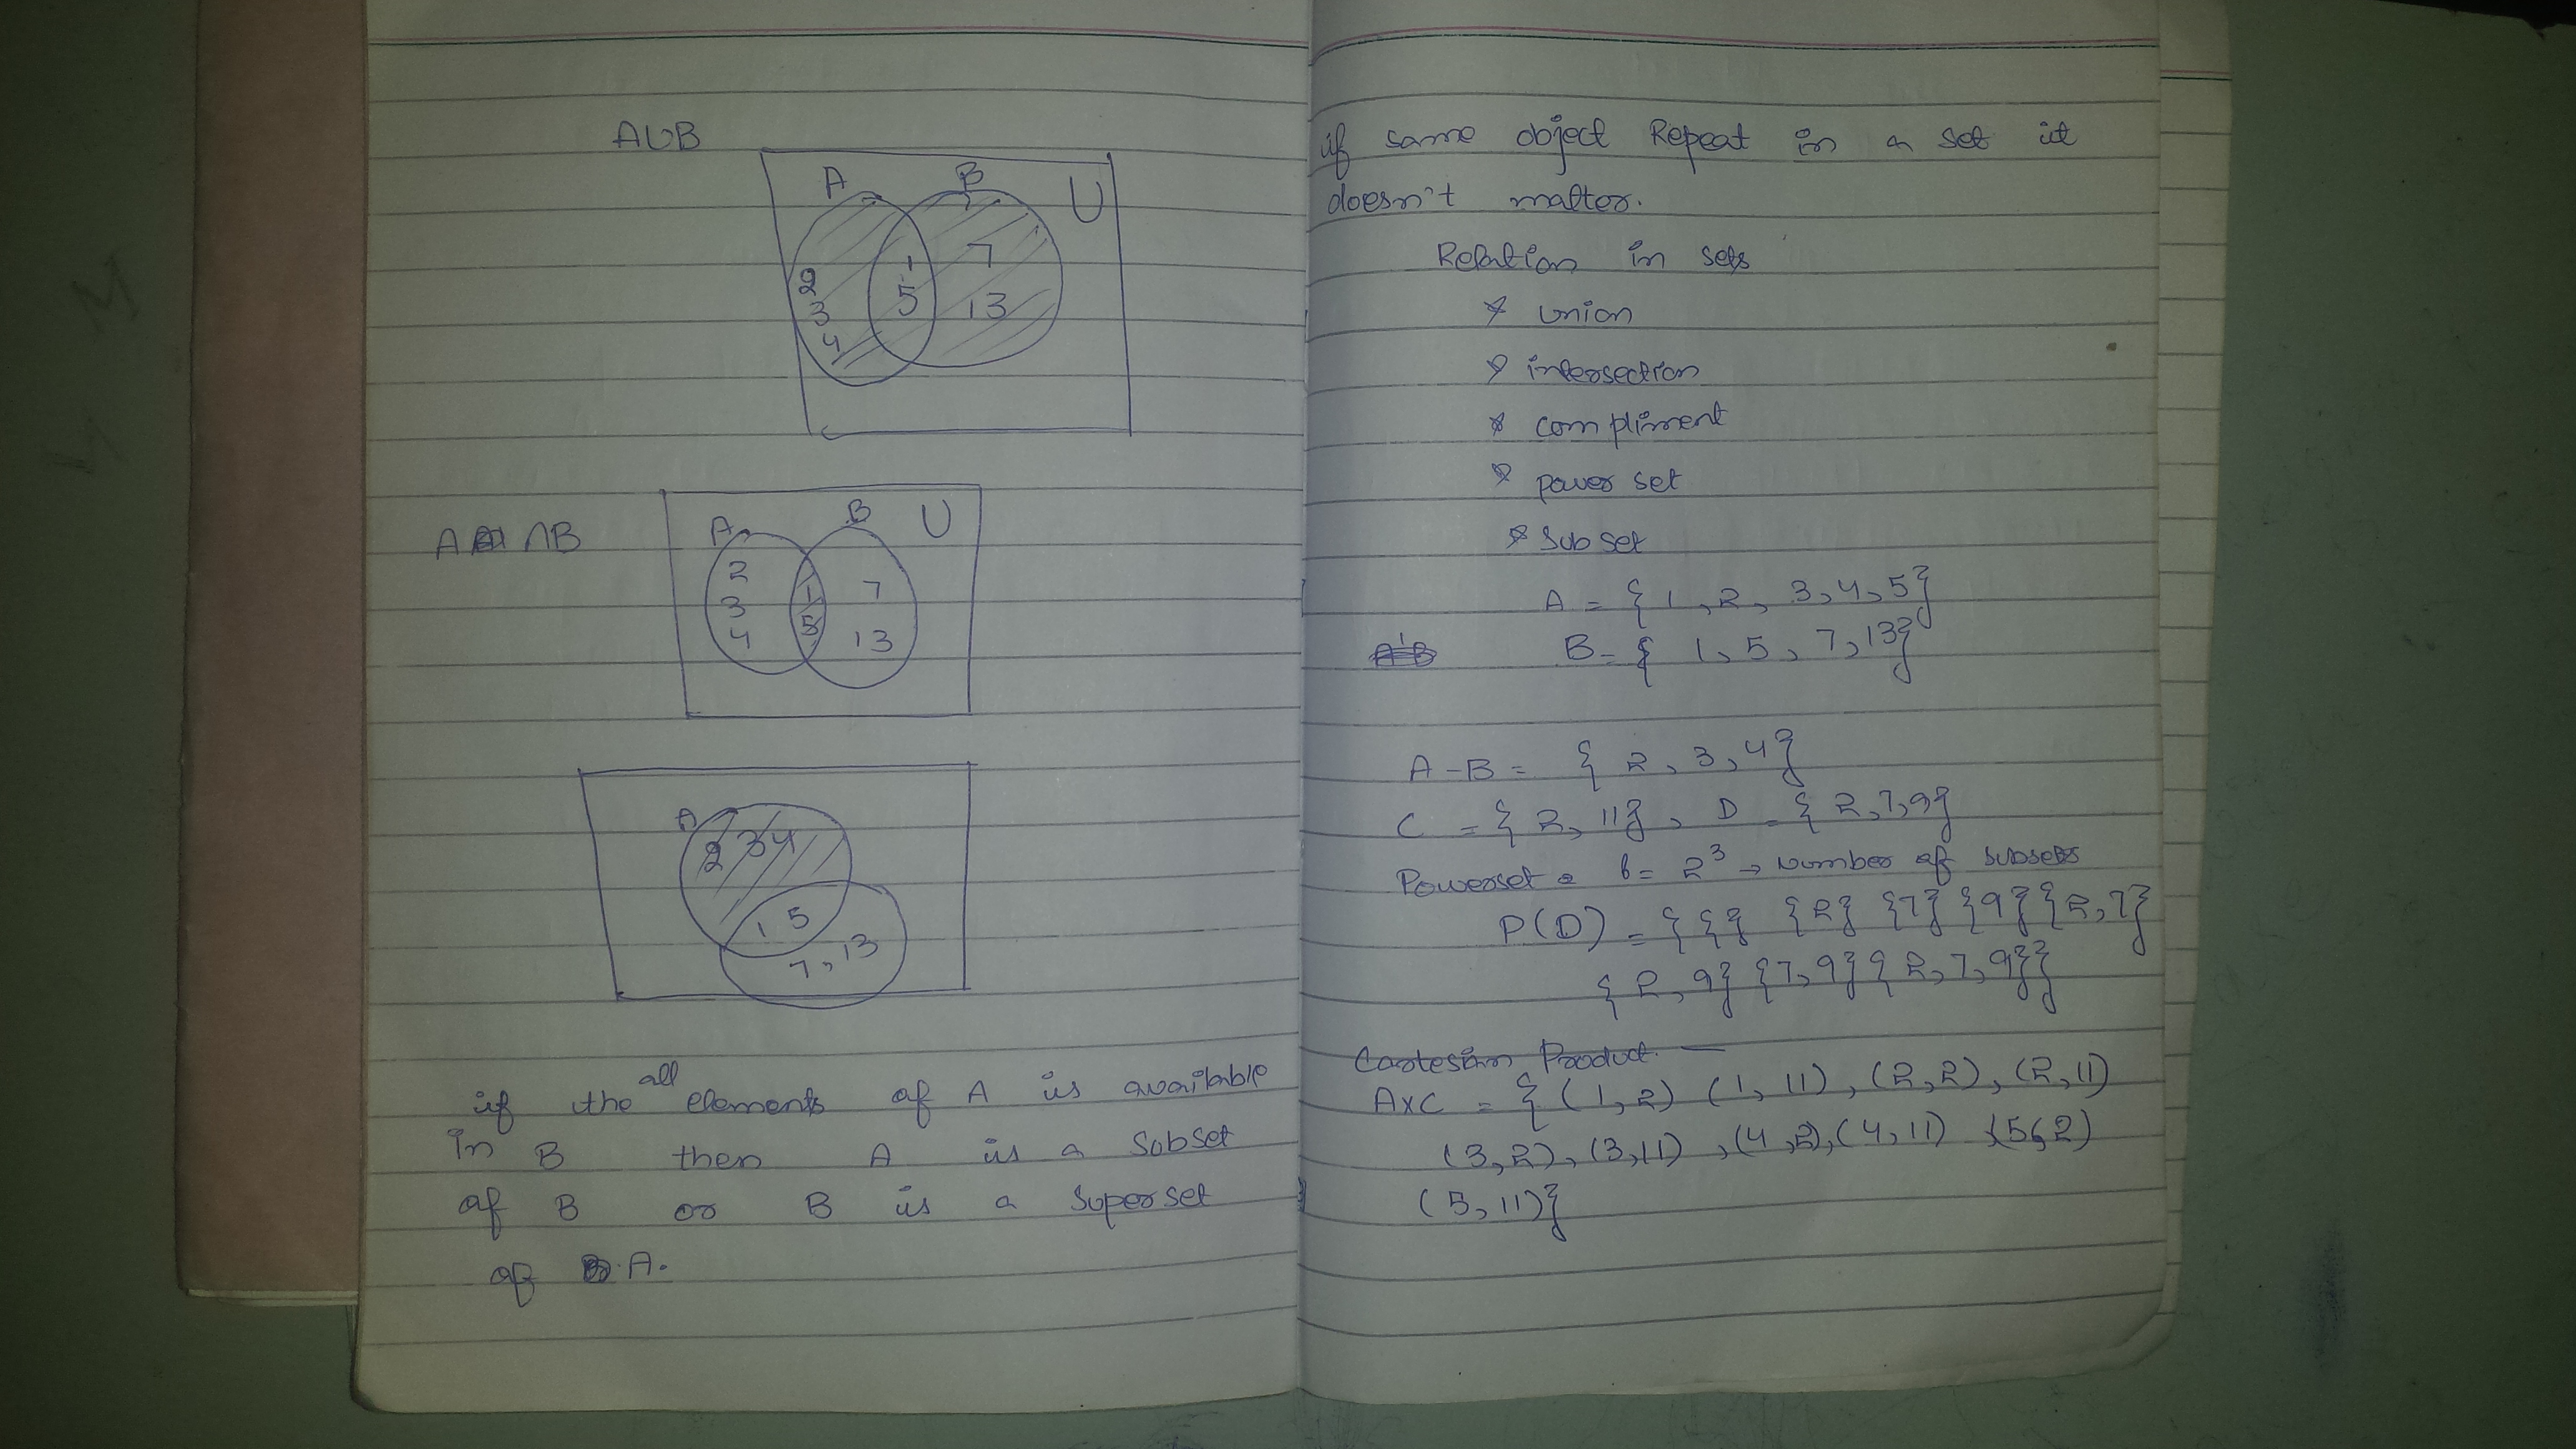 A∪B
A B U
2 1 7
3 5 13
4
A ∩B
A B U
2 1 7
3 5 13
4
A
2 3 4
1 5
7, 13
if the all elements of A is available
in B then A is a subset
of B or B is a superset
of A.
if same object Repeat in a set it
doesn't matter.
Relation in sets
* union
* intersection
* compliment
* power set
* Subset
A = { 1, 2, 3, 4, 5}
B = { 1, 5, 7, 13}
A - B = { 2, 3, 4}
C = { 2, 11}, D = { 2, 7, 9}
Powerset = 2³ → number of subsets
P(D) = { { } {2} {7} {9} {2, 7}
{ 2, 9} {7, 9} { 2, 7, 9}}
Cartesian Product. —
A×C = { (1, 2) (1, 11), (2, 2), (2, 11)
(3, 2), (3, 11), (4, 2), (4, 11) (5, 2)
(5, 11)}